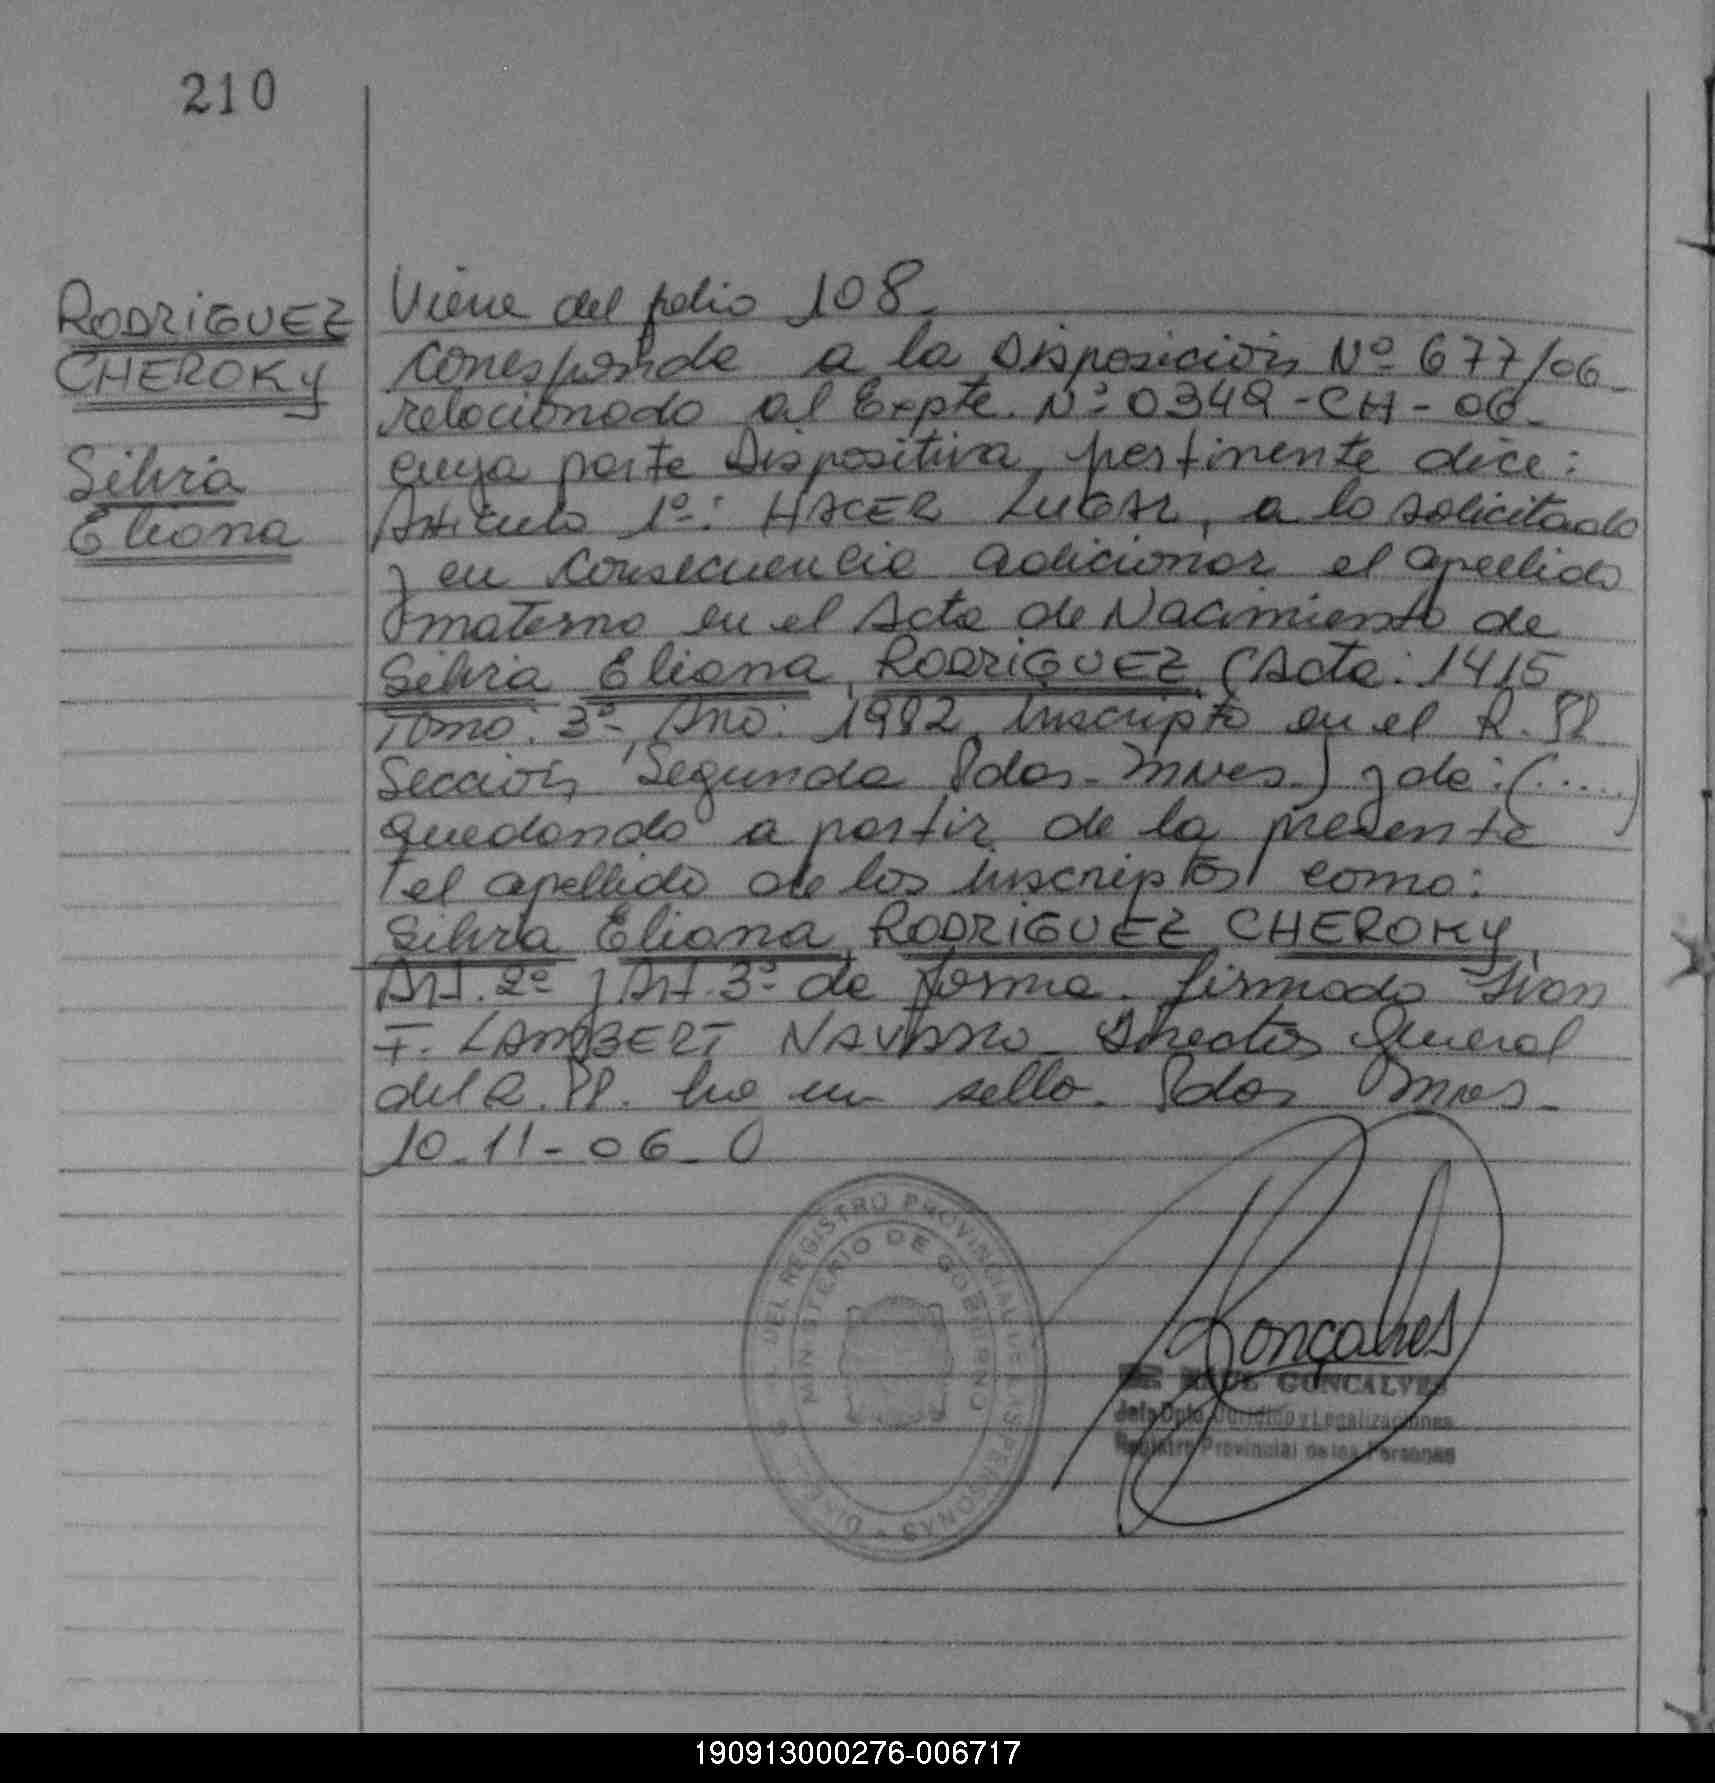 210
RODRIGUEZ
CHEROKY
Silvia
Eliana
Viene del folio 108.
Corresponde a la Disposición Nº 677/06
relacionado al Expte. Nº 0349-CH-06
cuya parte Dispositiva, pertinente dice:
Artículo 1º: HACER LUGAR, a lo solicitado
y en consecuencia adicionar el apellido
materno en el Acta de Nacimiento de
Silvia Eliana, RODRIGUEZ (Acta: 1415
Tomo: 3º- Año: 1982, Inscripto en el R. PP
Sección Segunda Pdas-Mnes.) y de: (.....)
quedando a partir de la presente
el apellido de los inscriptos como:
Silvia Eliana, RODRIGUEZ CHEROKY,
Art. 2º y Art. 3º de forma. firmado Ivan
F. LAMBERT NAVARRO Director General
del R. PP. hay un sello. Pdas Mnes-
10-11-06-
DEL REGISTRO PROVINCIAL DE LAS PERSONAS
MINISTERIO DE GOBIERNO
Goncalves
RAUL GONCALVES
Jefe Dpto. Jurídico y Legalizaciones
Registro Provincial de las Personas
190913000276-006717